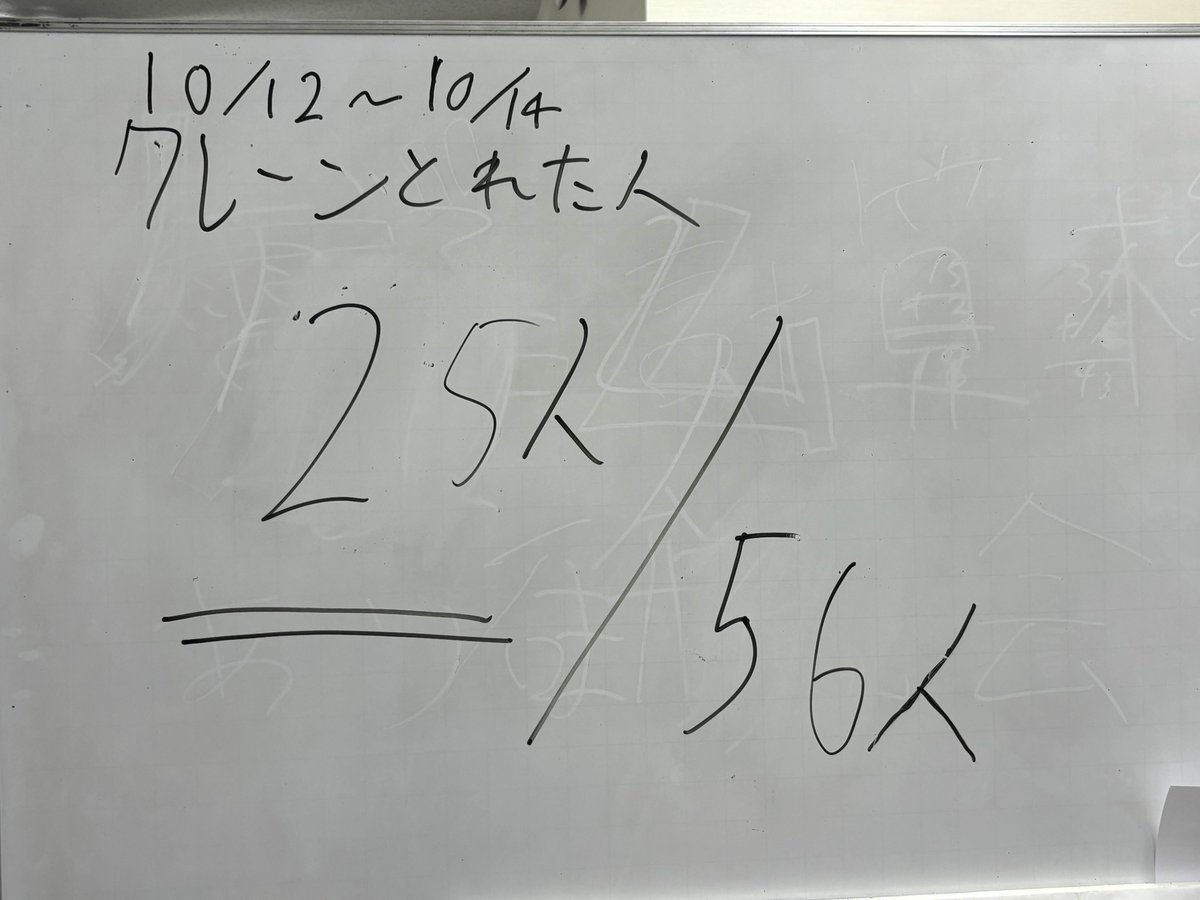 10/12～10/14
クレーンとれた人
25人/56人